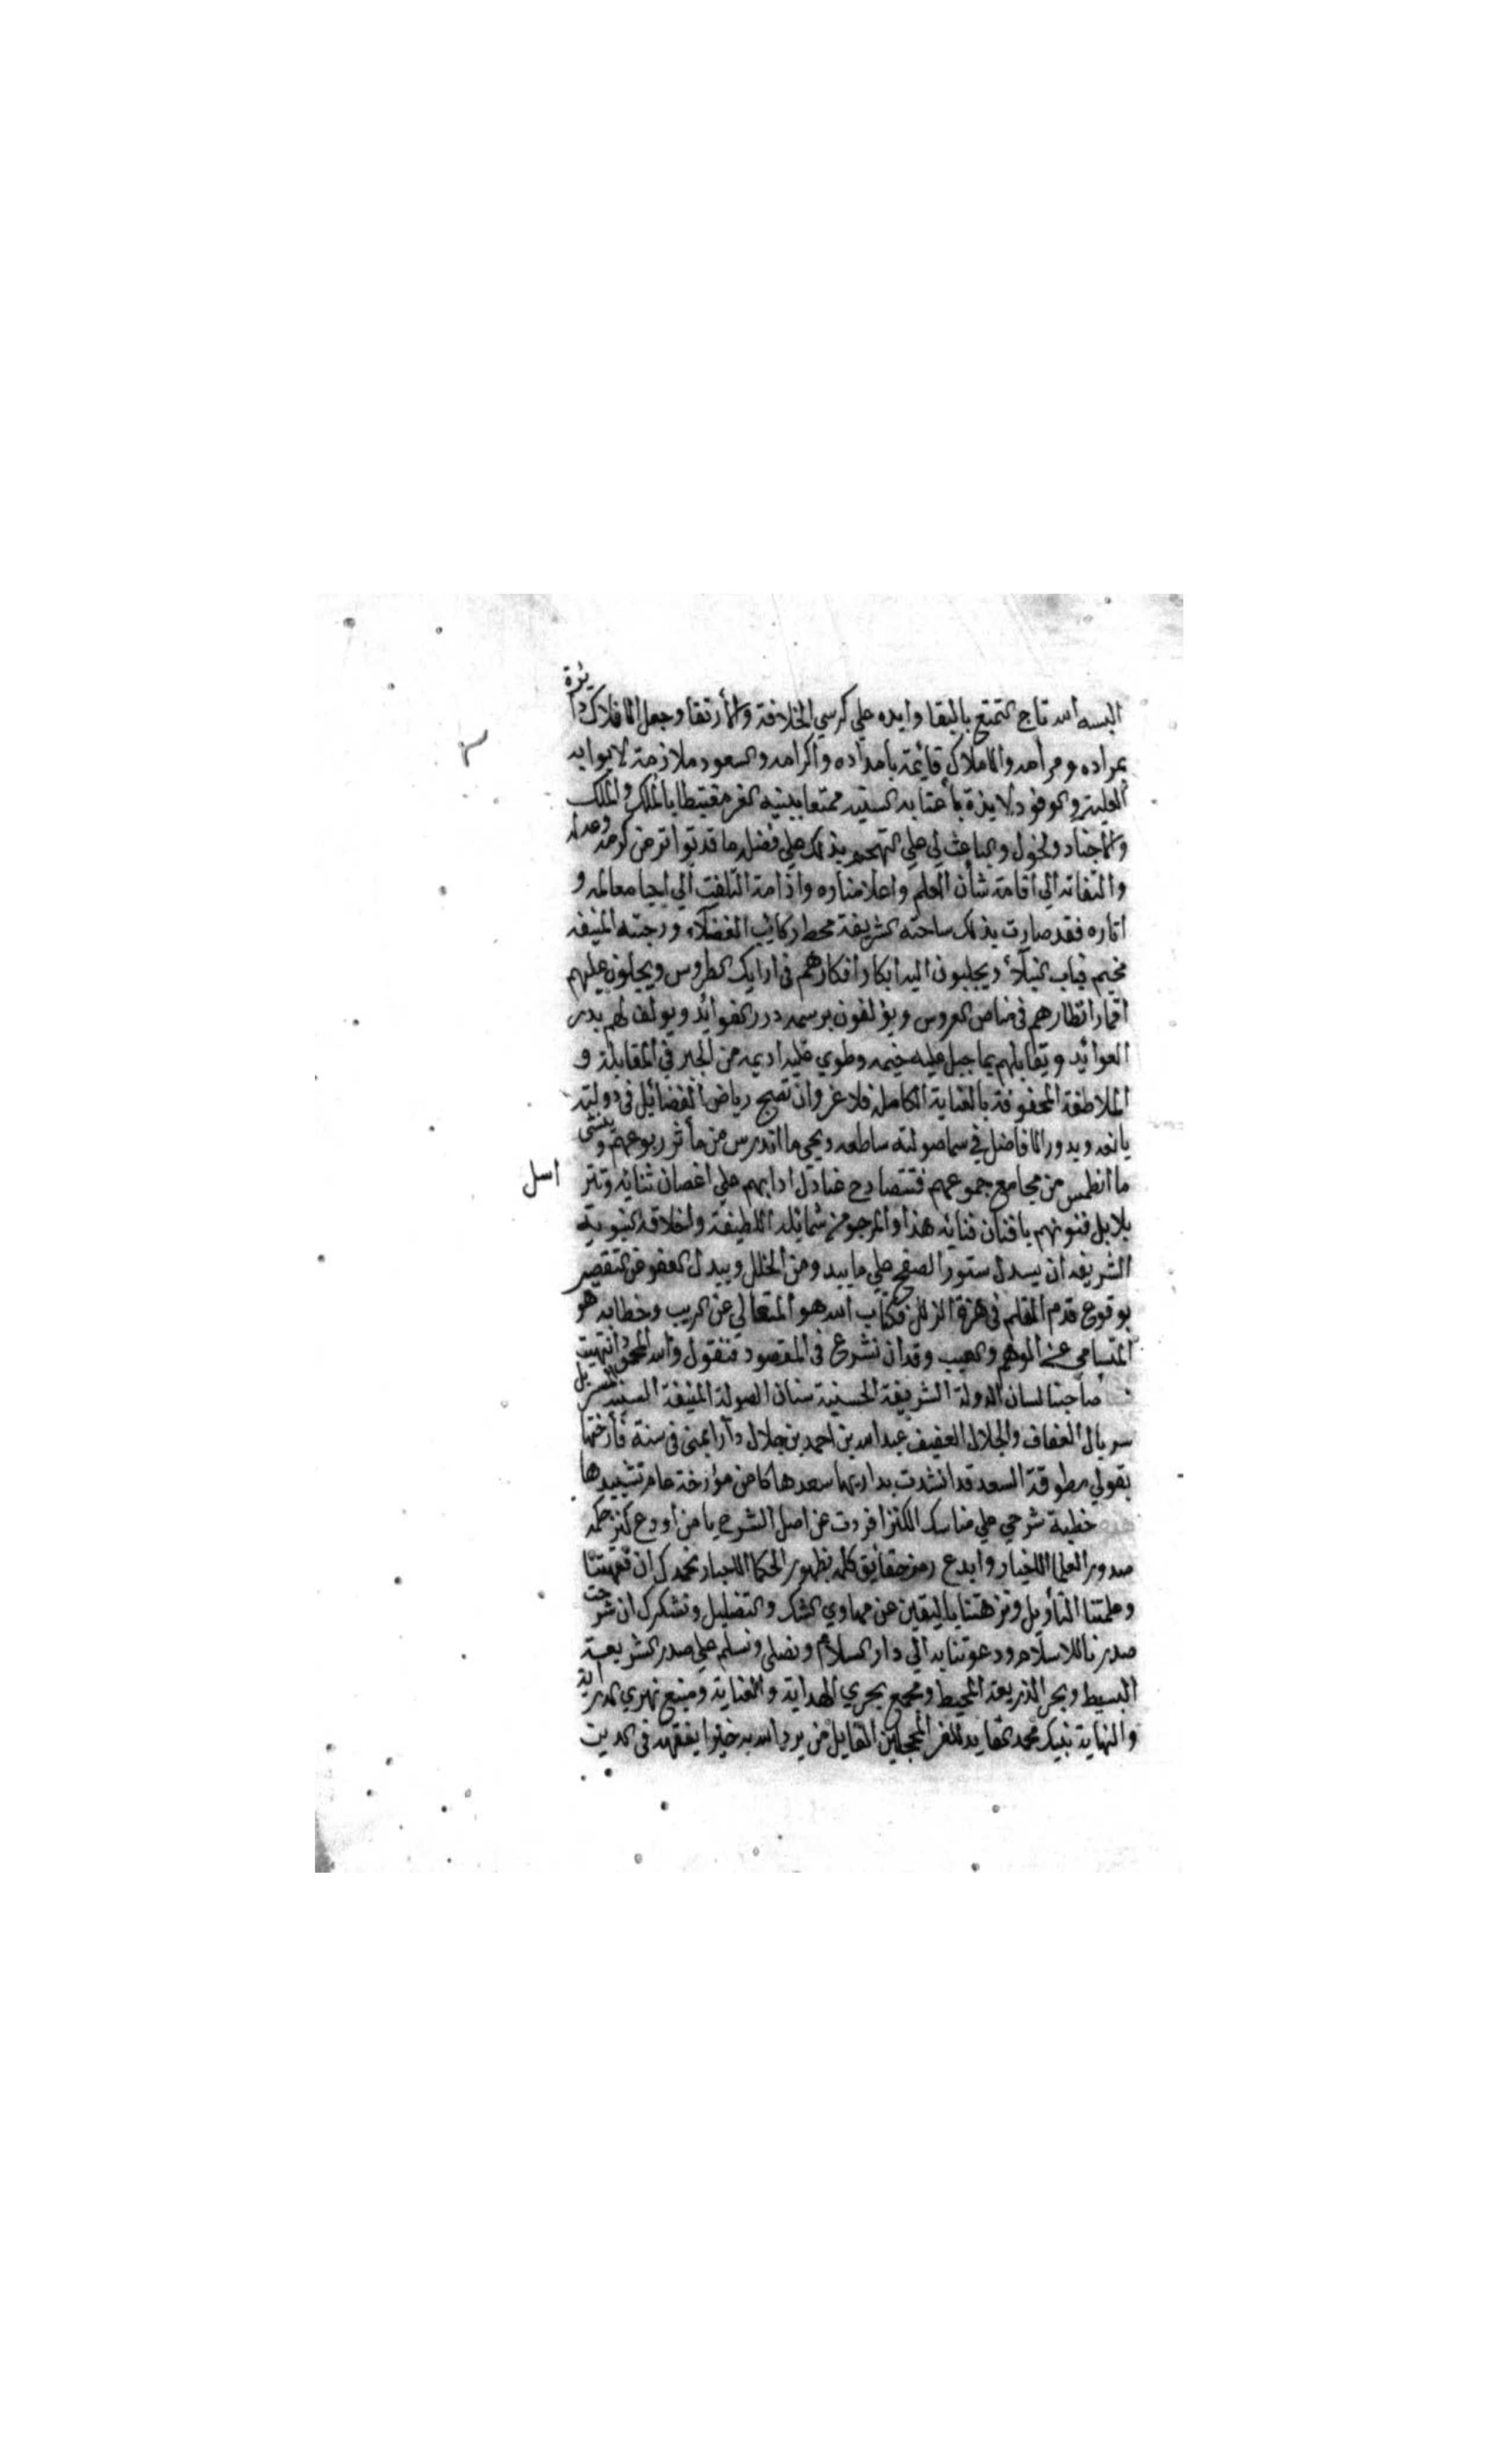 البسه الله تاج التمتع بالبقا وايده علي كرسي الخلافة والأرتقا وجعل الافلاك دائرة
بمراده ومرامه والاملاك قائمة بامداده واكرامه والسعود ملازمة لابوابه
العلية والوفود لايذة بأعتابه السنيه ممتعا ببنيه الغر مغتبطا بالملك والملك
والأجناد والخول والباعث لي علي التهجم بذلك علي فضله ما قد تواتر من كرمه وعدله
والتفاته الي اقامة شأن العلم واعلا مناره واذامة التلفت الي احيا معالمه و
اثاره فقد صارت بذلك ساحته الشريفة محط ركائب الفضلاء ورحبته المنيفه
مخيم قباب النبلاء ويجلبون اليه ابكار افكارهم في ارايك الطروس ويجلون عليهم
اقمار انظارهم في مناص العروس ويؤلفون برسمه درر الفوائد ويولف لهم بدر
العوائد ويقابلهم بما جبل عليه خيمه وطوي عليه اديمه من الجبر في المقابلة و
الملاطفة المحفوفة بالعناية الكاملة فلا غرو ان تصبح رياض الفضائل في دولته
يانعه وبدور الافاضل في سما صولته ساطعه ويحي ما اندرس من مأثر ربوعهم وينشي
ما انطمس من مجامع جموعهم فتتصادح عنادل ادابهم علي اغصان ثنائه وتتر
اسل
بلابل فنونهم بافنان فنائه هذا والمرجو من شمائله اللطيفة واخلاقه النبوية
الشريفه ان يسدل ستور الصفح علي ما يبدو من الخلل ويبدل العفو عن التقصير
بوقوع قدم القلم في هوة الزلل فكتاب الله هو المتعالي عن الريب وخطابه هو
المتسامي عن الوهم والعيب وقد ان نشرع في المقصود فنقول والله المحمود انتهيت
صاحبنا لسان الدولة الشريفة الحسنية سنان الصولة المنيفة السنيه المتسربل
سربال العفاف والجلال العفيف عبد الله بن احمد بن جلال دارا بمني في سنة فأرختها
بقولي مطوقة السعد قد انشدت بداريها سعدها كامن مؤرخة عام تشييدها
خطبة شرحي علي مناسك الكنز افردت عن اصل الشرح يا من اودع كنز حكمه
صدور العلما الاخيار وابدع رمز حقايق كلمه بظهور الحكما الاحبار نحمدك ان فقهتنا
وعلمتنا التأويل ونزهتنا باليقين عن مهاوي الشك والتضليل ونشكرك ان شرحت
صدرنا للاسلام ودعوتنا به الي دار السلام ونصلي ونسلم علي صدر الشريعة
البسيط وبحر الذريعة المحيط ومجمع بحري الهداية والعناية ومنبع نهري الدراية
والنهاية نبيك محمد القايد للغر المحجلين القايل من يرد الله به خيرا يفقهه في الدين